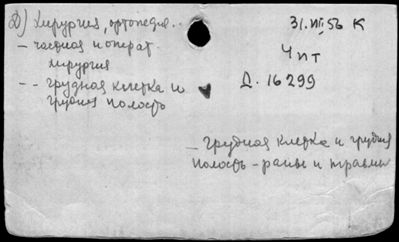 2) Хирургия, ортопедия..
– частная и операт.
хирургия
– – грудная клетка и
грудная полость
31.VII.56 К
Чит
Д. 16299
– грудная клетка и грудная
полость – раны и травмы